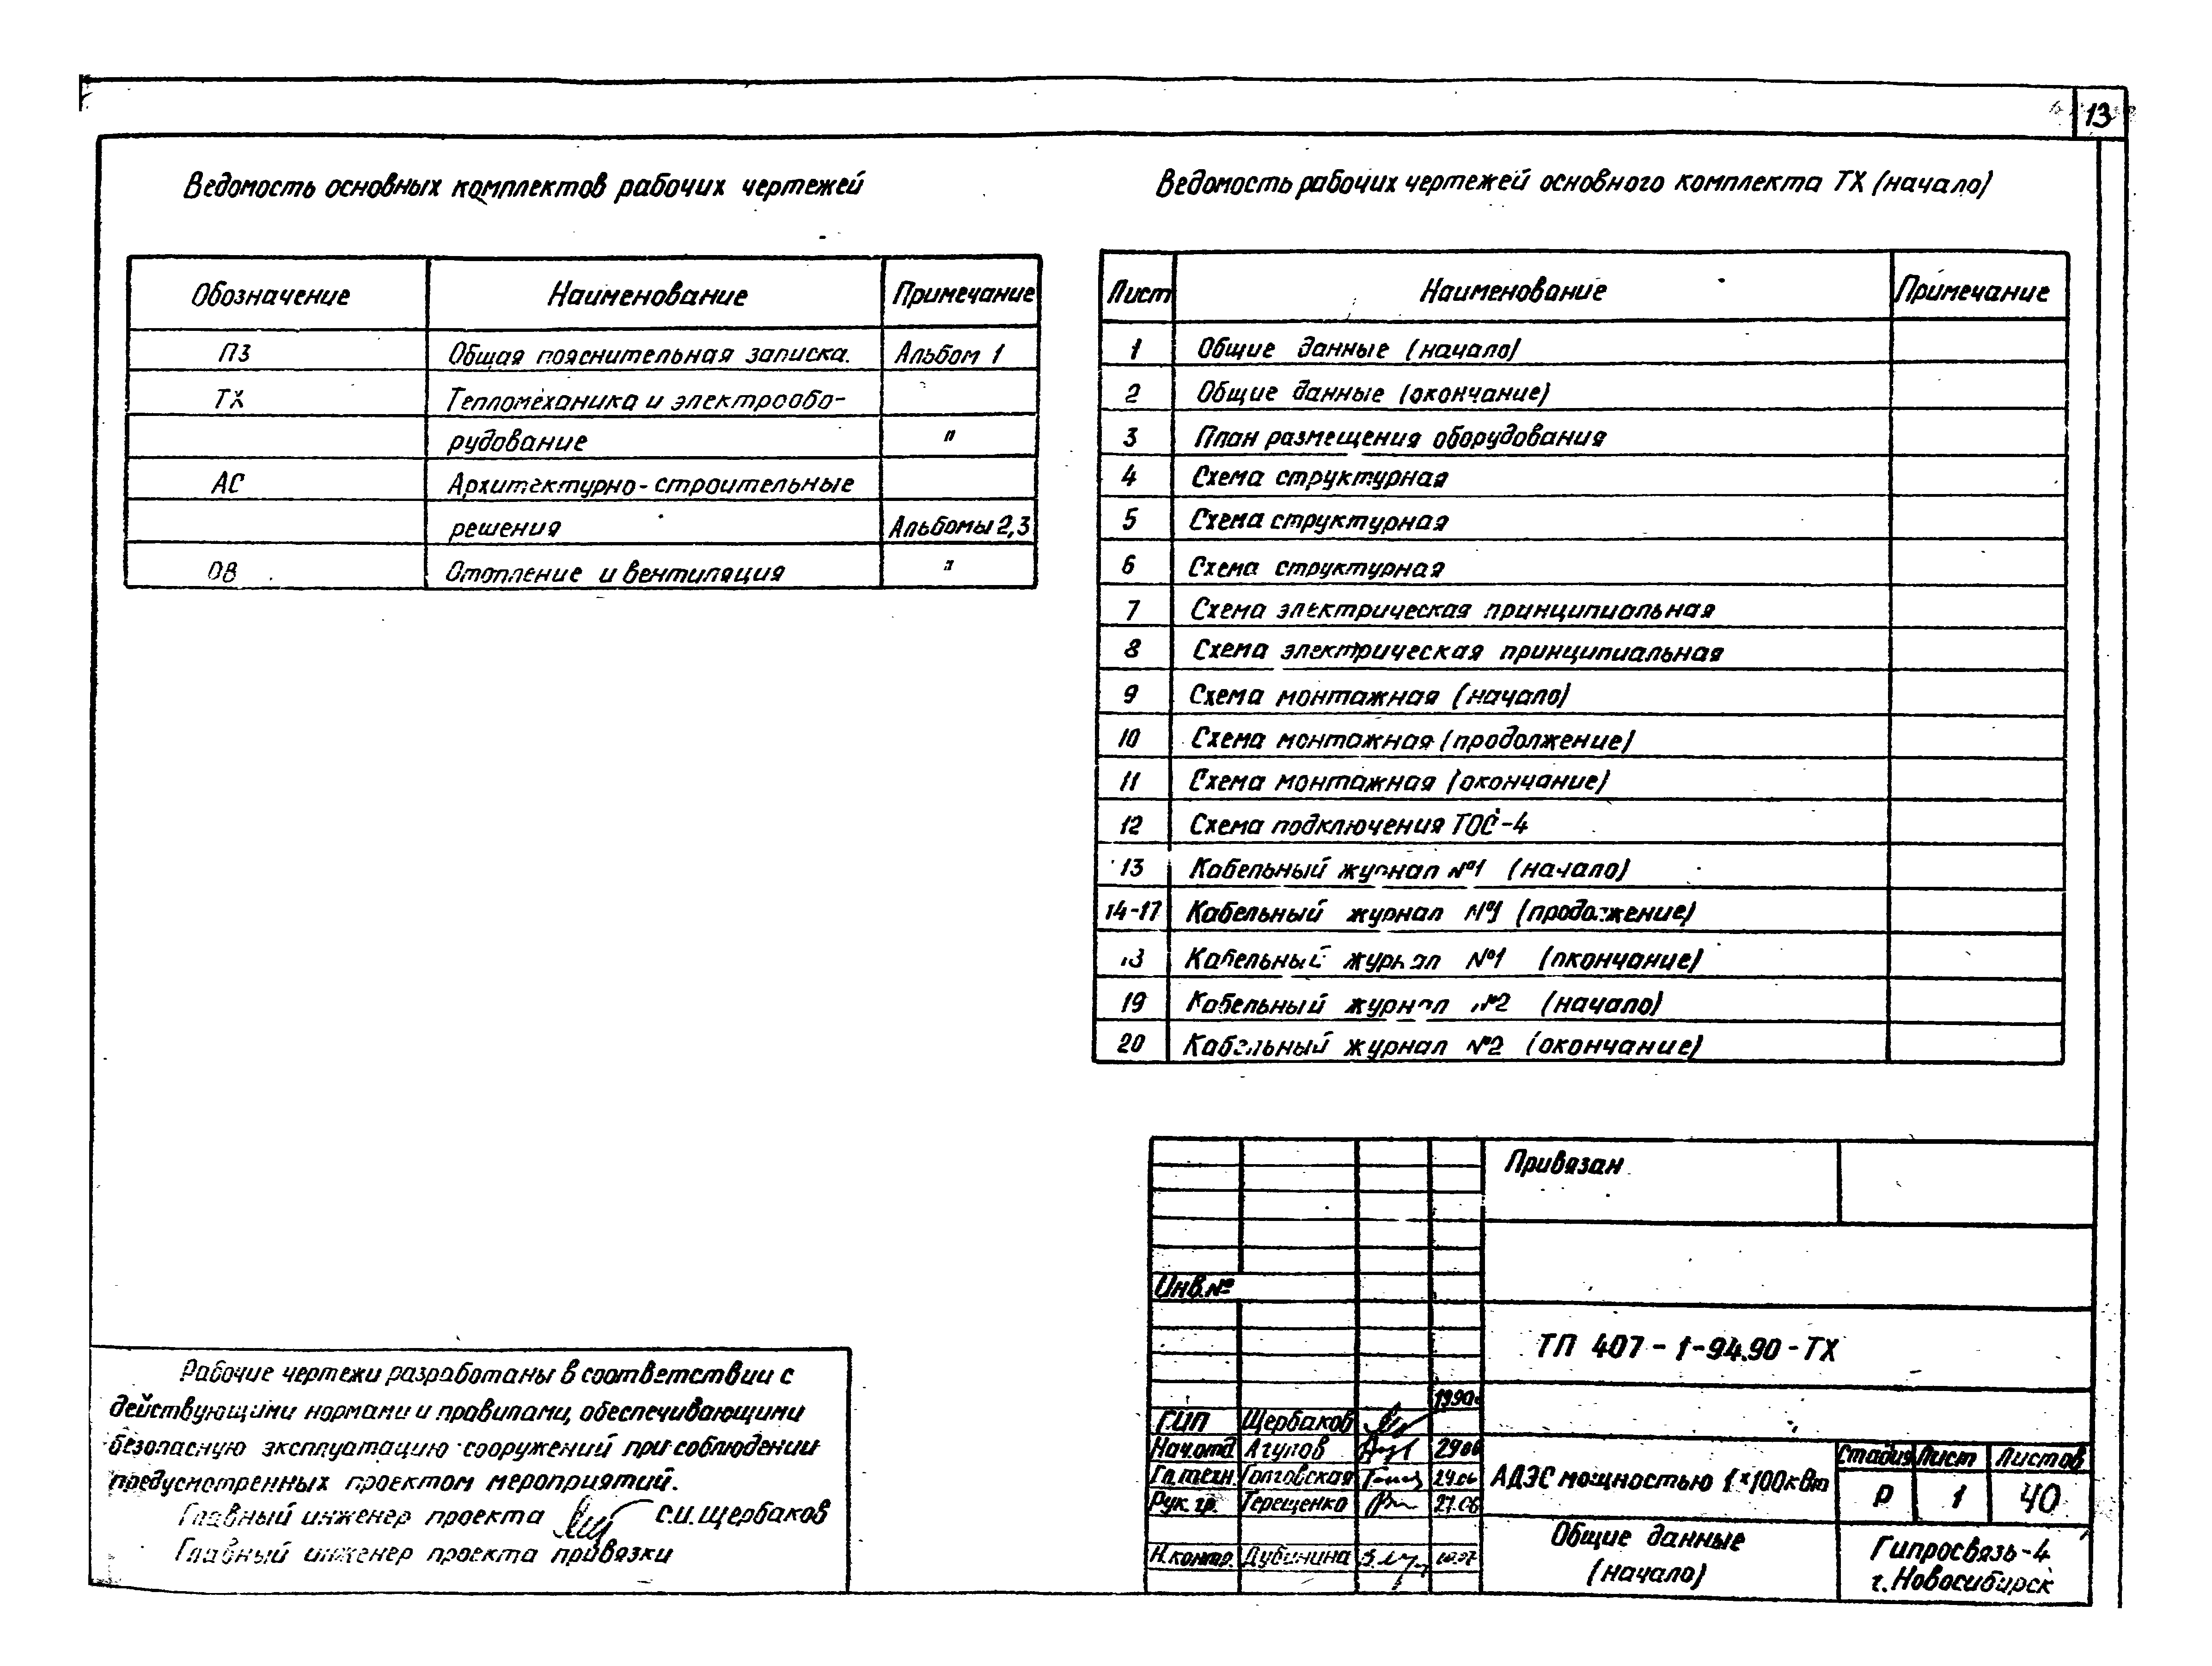 13
Ведомость основных комплектов рабочих чертежей
Обозначение Наименование Примечание
ПЗ Общая пояснительная записка. Альбом 1
ТХ Тепломеханика и электрообо-
рудование "
АС Архитектурно-строительные
решения Альбомы 2,3
ОВ Отопление и вентиляция "
Ведомость рабочих чертежей основного комплекта ТХ (начало)
Лист Наименование Примечание
1 Общие данные (начало)
2 Общие данные (окончание)
3 План размещения оборудования
4 Схема структурная
5 Схема структурная
6 Схема структурная
7 Схема электрическая принципиальная
8 Схема электрическая принципиальная
9 Схема монтажная (начало)
10 Схема монтажная (продолжение)
11 Схема монтажная (окончание)
12 Схема подключения ТОС-4
13 Кабельный журнал №1 (начало)
14-17 Кабельный журнал №1 (продолжение)
18 Кабельный журнал №1 (окончание)
19 Кабельный журнал №2 (начало)
20 Кабельный журнал №2 (окончание)
Рабочие чертежи разработаны в соответствии с
действующими нормами и правилами, обеспечивающими
безопасную эксплуатацию сооружений при соблюдении
предусмотренных проектом мероприятий.
Главный инженер проекта С.И. Щербаков
Главный инженер проекта привязки
Привязан
Инв.№
ТП 407-1-94.90-ТХ
1990г
ГИП Щербаков
Нач.отд Агупов
Гл.техн. Голговская 24.06
Рук. гр. Терещенко 21.06
Н.контр. Дубинина
АДЭС мощностью 1×100кВт
Стадия Лист Листов
Р 1 40
Общие данные
(начало)
Гипросвязь-4
г. Новосибирск